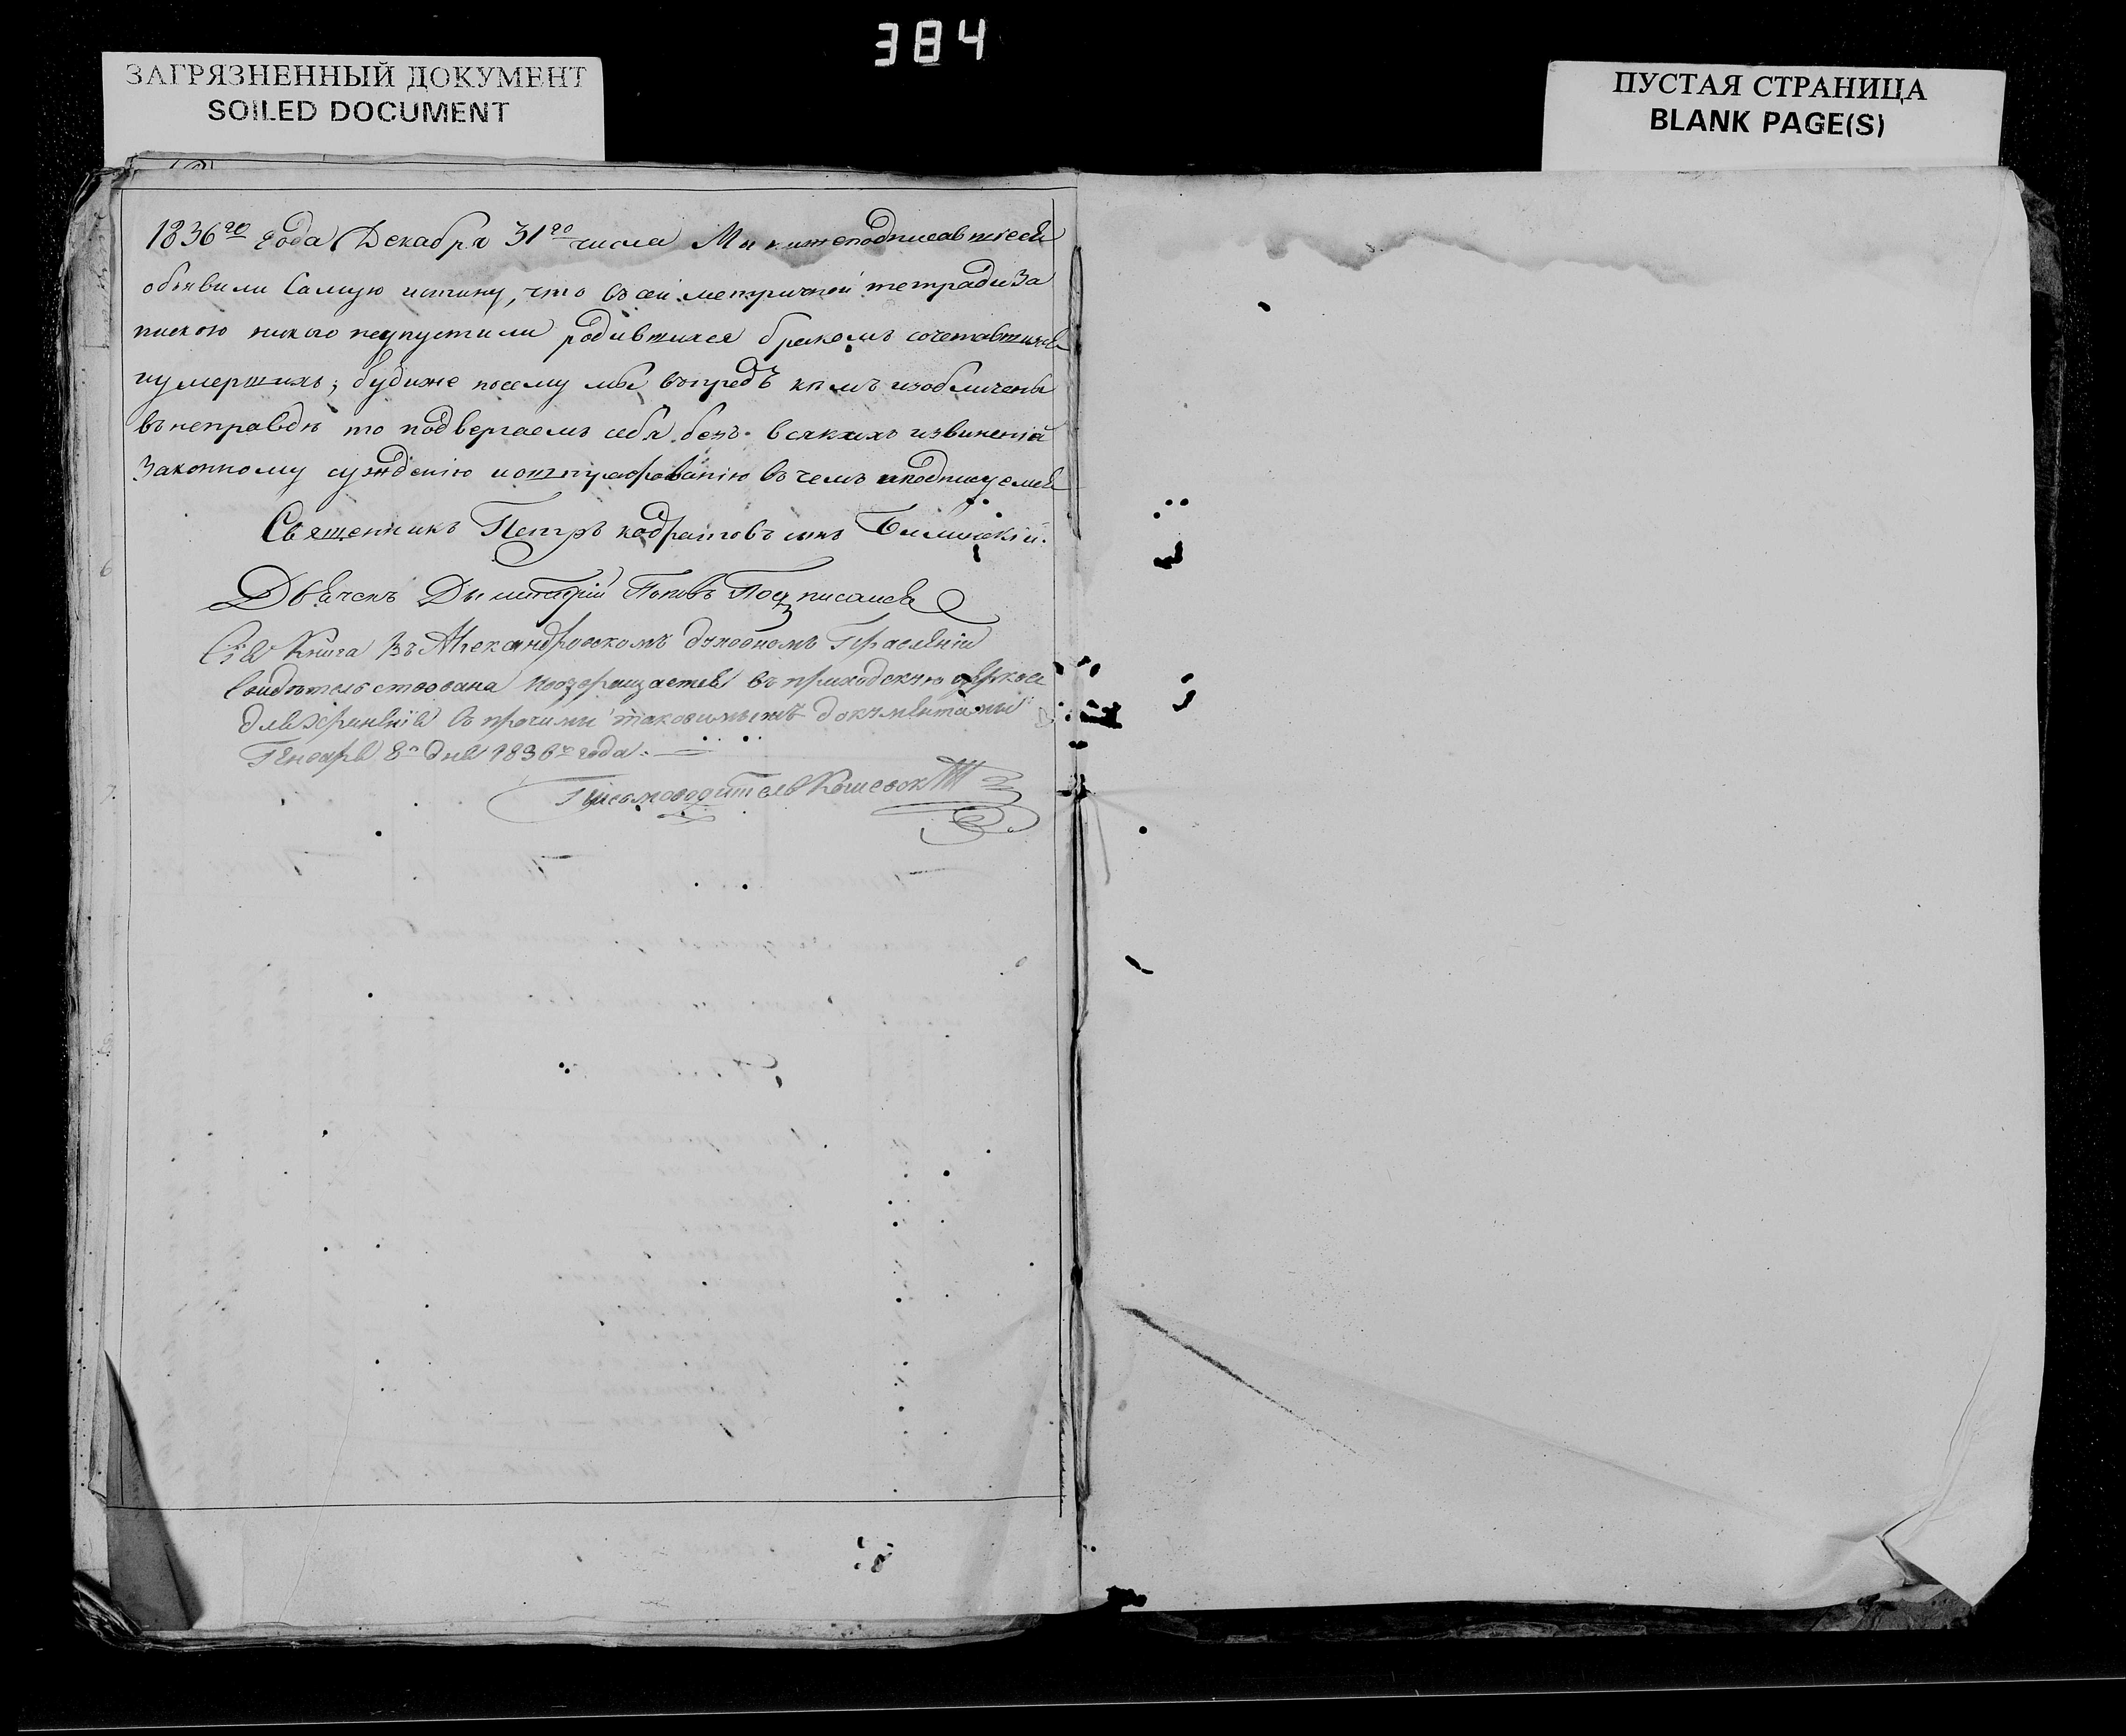 384
ЗАГРЯЗНЕННЫЙ ДОКУМЕНТ
SOILED DOCUMENT
ПУСТАЯ СТРАНИЦА
BLANK PAGE(S)
1836го года Декабря 31го числа Мы нижеподписавшіеся
объявили Самую истину, что въ сей метричной тетради за
пискою никого неупустили родившихся бракомъ сочетавшихся
иумершихъ; будиже посему мы впредъ кѣмъ изобличены
въ неправдѣ то подвергаемъ себя безъ всякихъ извиненій
Законному сужденію иоштрафованію въ чемъ иподписуемся
Священникъ Петръ кодратовъ сынъ
Дьячекъ Дымитрій Поповъ Подписался
Сія Книга Въ Александровскомъ духовномъ Правленіи
Свидѣтельствована возвращается въ приходскую церковь
для храненія съ прочими таковымижъ документами
Генваря 8 дня 1836 года.
Писмоводитель
6
7.